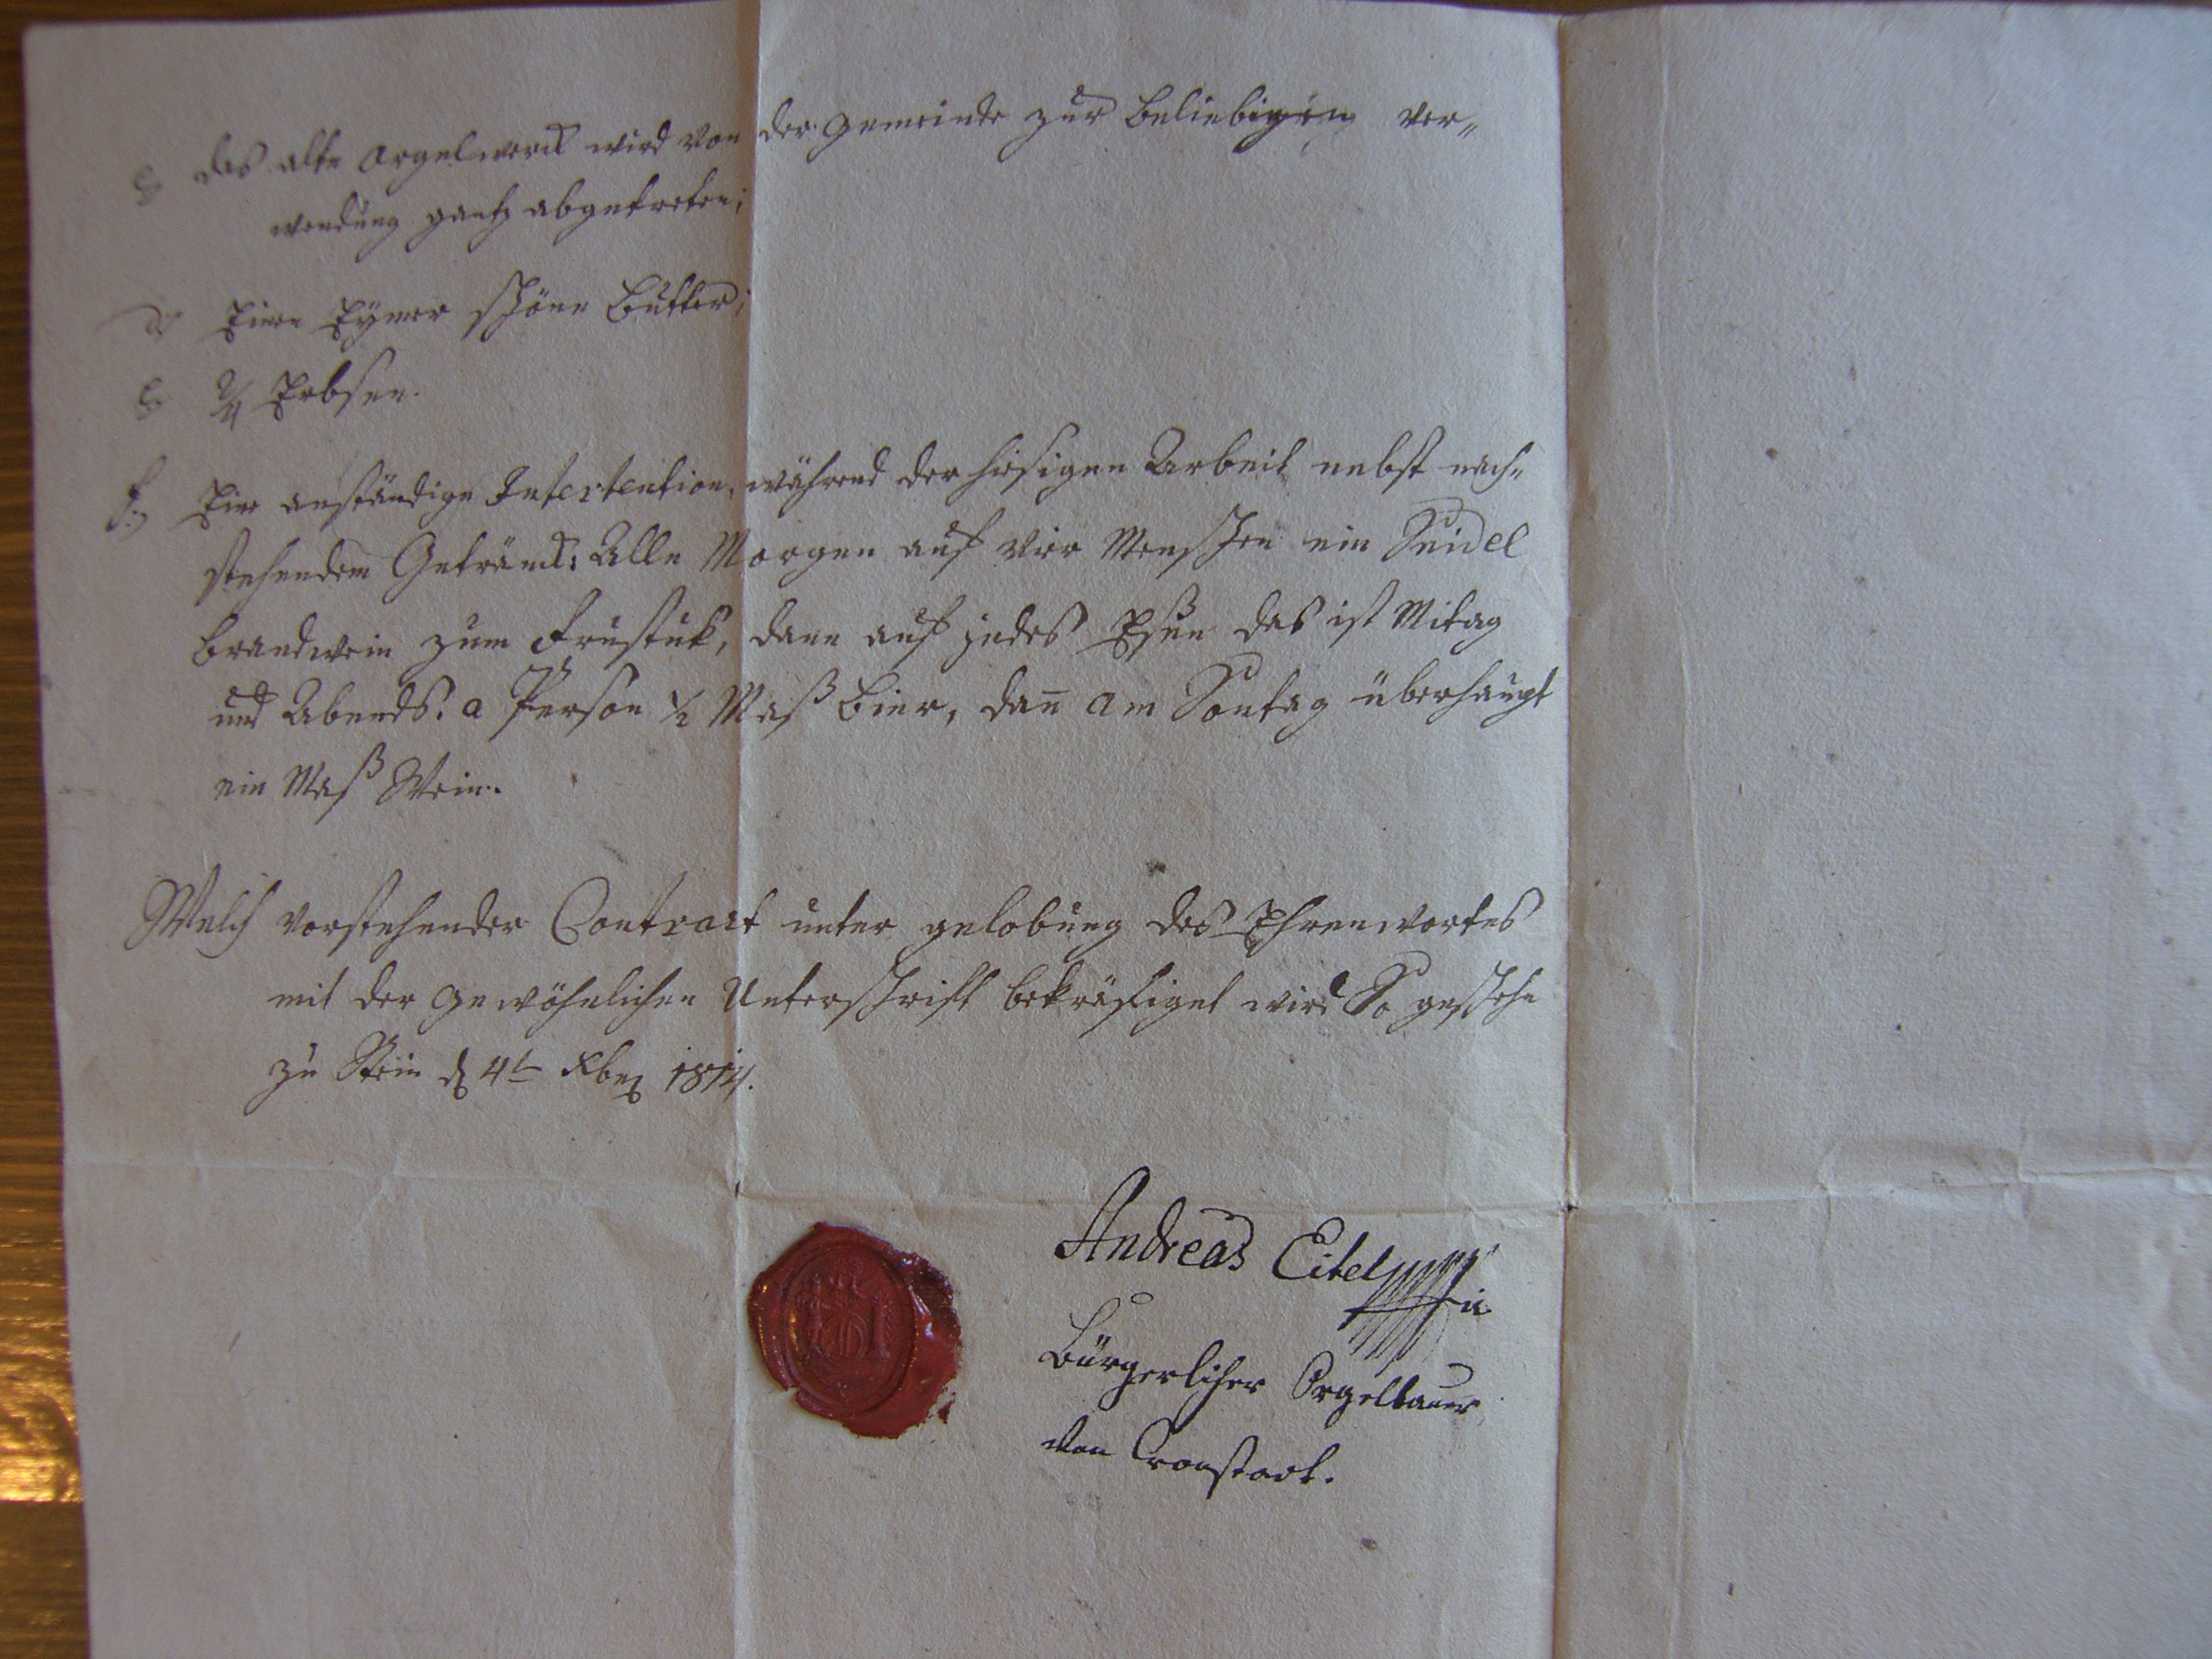 c das alte orgelwerck wird von der gemeinde zur beliebigen ver„
wendung gantz abgetreten;
d Einen Eymer schöne Butter;
e 2/4 Erbsen.
f.) Eine anständige Intertention, während der hiesigen Arbeit nebst nach„
stehendem Getränck: Alle Morgen auf vier Menschen ein Seidel
brandwein zum Frustuk, dann auf jedes Eßen das ist Mitag
und Abends. a Person ½ Maß bier, dan̄ am Sontag überhaupt
ein Maß Wein.
Welch vorstehender Contract unter gelobung des Ehrenwortes
mit der gewöhnlichen Unterschrift bekräftiget wird So geschehn
zu Stein d 4t Xber 1814.
Andreas Eitel
Bürgerlicher Orgelbauer
von Cronstadt.